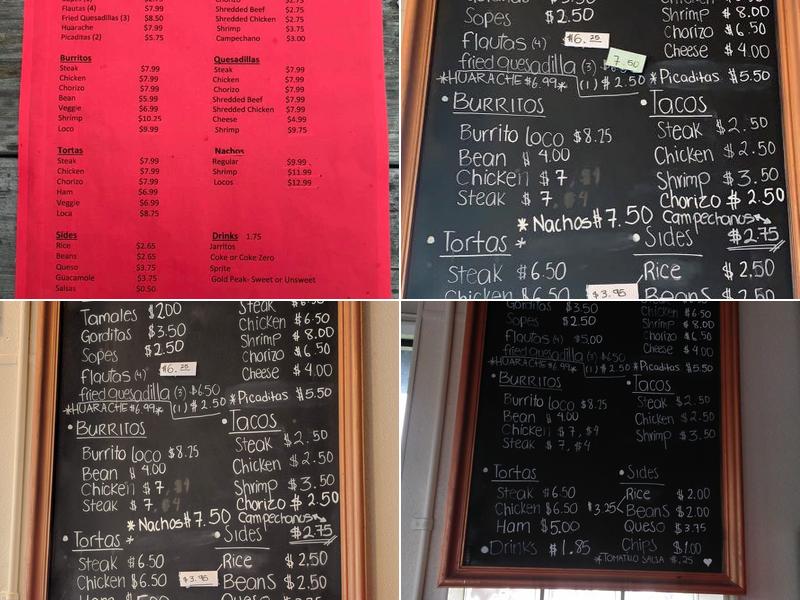 Flautas (4) $7.99
Fried Quesadillas (3) $8.50
Huarache $7.99
Picaditas (2) $5.75
Burritos
Steak $7.99
Chicken $7.99
Chorizo $7.99
Bean $5.99
Veggie $6.99
Shrimp $10.25
Loco $9.99
Tortas
Steak $7.99
Chicken $7.99
Chorizo $7.99
Ham $6.99
Veggie $6.99
Loca $8.75
Sides
Rice $2.65
Beans $2.65
Queso $3.75
Guacamole $3.75
Salsas $0.50
Chorizo $2.75
Shredded Beef $2.75
Shredded Chicken $2.75
Shrimp $3.75
Campechano $3.00
Quesadillas
Steak $7.99
Chicken $7.99
Chorizo $7.99
Shredded Beef $7.99
Shredded Chicken $7.99
Cheese $4.99
Shrimp $9.75
Nachos
Regular $9.99
Shrimp $11.99
Locos $12.99
Drinks 1.75
Jarritos
Coke or Coke Zero
Sprite
Gold Peak- Sweet or Unsweet
Sopes $2.50
flautas (4) $6.25
fried quesadilla (3) 7.50
*HUARACHE $6.99* (1) $2.50
• BURRITOS
Burrito loco $8.25
Bean $4.00
Chicken $7,
Steak $7,
* Nachos $7.50
• Tortas *
Steak $6.50
Chicken $6.50
Shrimp $8.00
Chorizo $6.50
Cheese $4.00
* Picaditas $5.50
• Tacos
Steak $2.50
Chicken $2.50
Shrimp $3.50
Chorizo $2.50
Campechanos
$2.75
• Sides
Rice $2.50
$3.95 Beans $2.50
Tamales $2.00
Gorditas $3.50
Sopes $2.50
flautas (4) $6.25
fried quesadilla (3) $6.50
*HUARACHE $6.99* (1) $2.50
• BURRITOS
Burrito loco $8.25
Bean $4.00
Chicken $7,
Steak $7,
* Nachos $7.50
• Tortas *
Steak $6.50
Chicken $6.50
Steak $6.50
Chicken $6.50
Shrimp $8.00
Chorizo $6.50
Cheese $4.00
* Picaditas $5.50
Tacos
Steak $2.50
Chicken $2.50
Shrimp $3.50
Chorizo $2.50
Campechanos
$2.75
• Sides
Rice $2.50
$3.95 Beans $2.50
Gorditas $3.50
Sopes $2.50
Flautas (4) $5.00
fried quesadilla (3) $6.50
*HUARACHE $6.99* (1) $2.50
• BURRITOS
Burrito loco $8.25
Bean $4.00
Chicken $7, $4
Steak $7, $4
• Tortas
Steak $6.50
Chicken $6.50
Ham $5.00
• Drinks $1.85
Chicken $6.50
Shrimp $8.00
Chorizo $6.50
Cheese $4.00
* Picaditas $5.50
• Tacos
Steak $2.50
Chicken $2.50
Shrimp $3.50
• Sides
Rice $2.00
$3.25 Beans $2.00
Queso $3.75
Chips $1.00
*TOMATILLO SALSA $.25